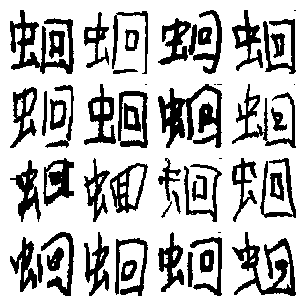 蛔蛔蛔蛔
蛔蛔蛔蛔
蛔蛔蛔蛔
蛔蛔蛔蛔